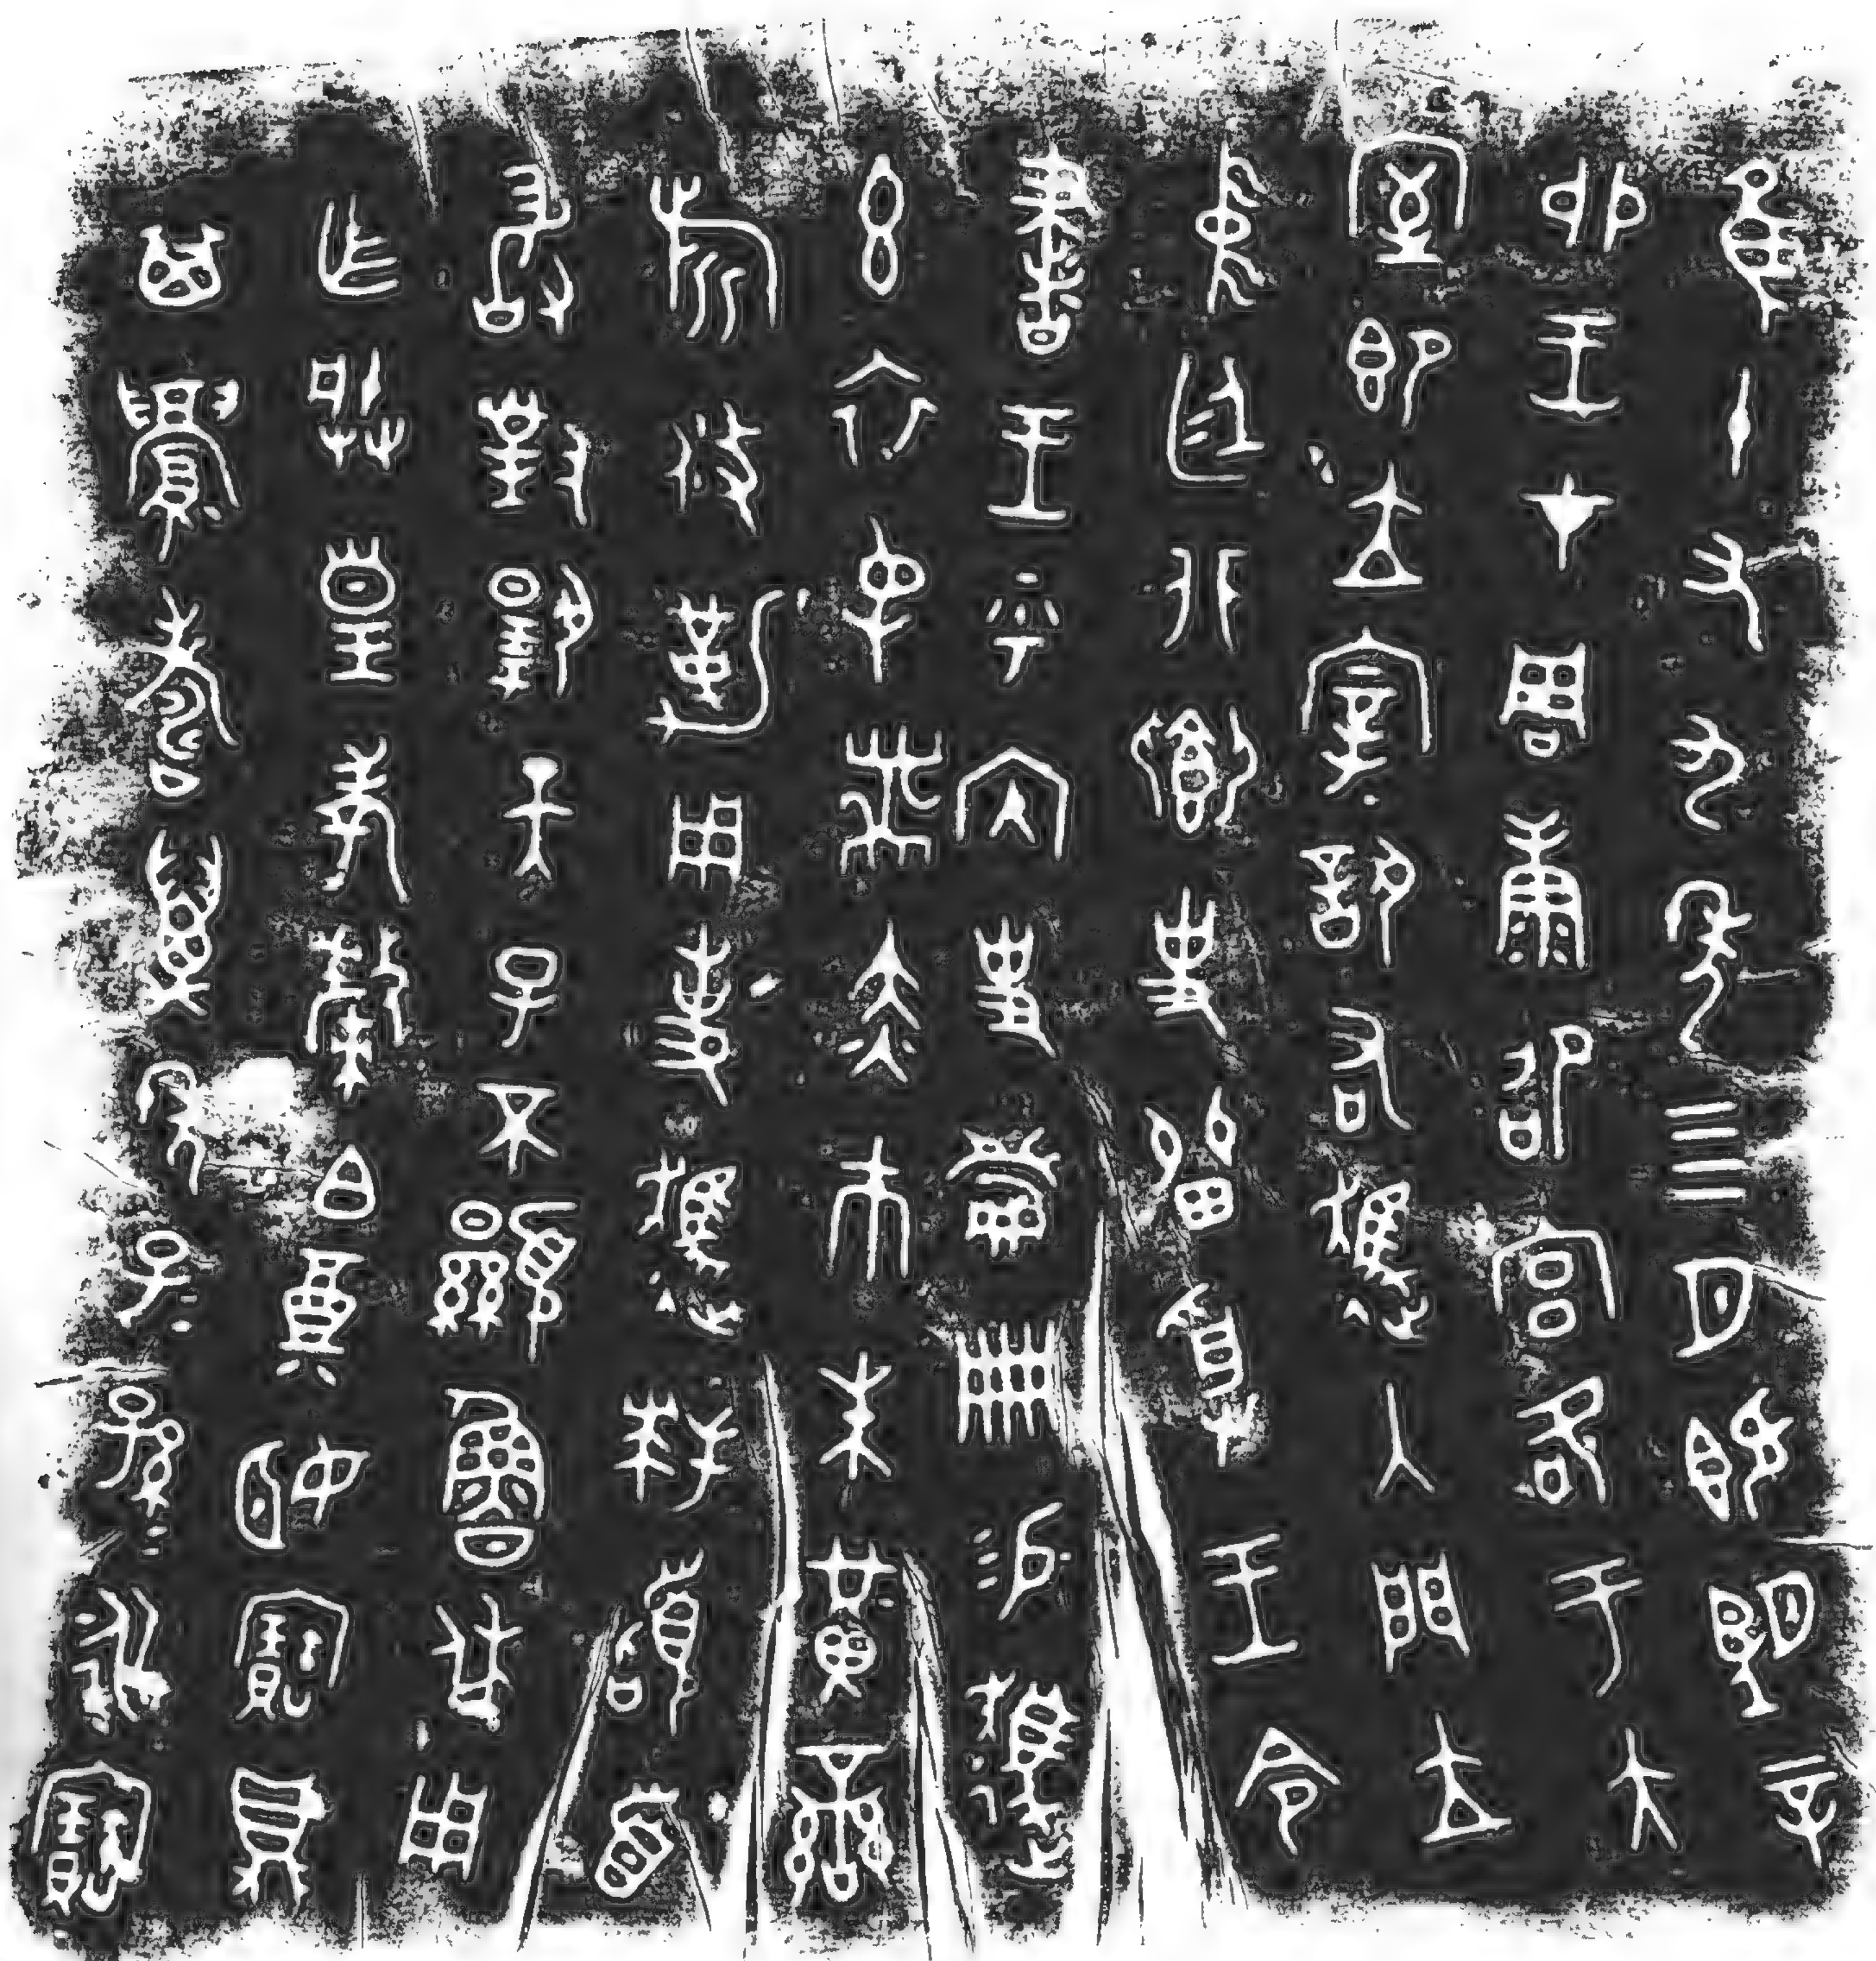 隹十又九年四月既望辛
卯王才周康卲宮各于大
室即立宰訊右趞入門立
中廷北鄉史留受王令
書王乎內史冊易趞
玄衣屯黹赤巿朱黃䜌
旂攸勒用事趞拜𩒨首
敢對揚天子不顯魯休用
乍朕皇考斄白奠姬寶鼎
其眉壽萬年子=孫=永寶